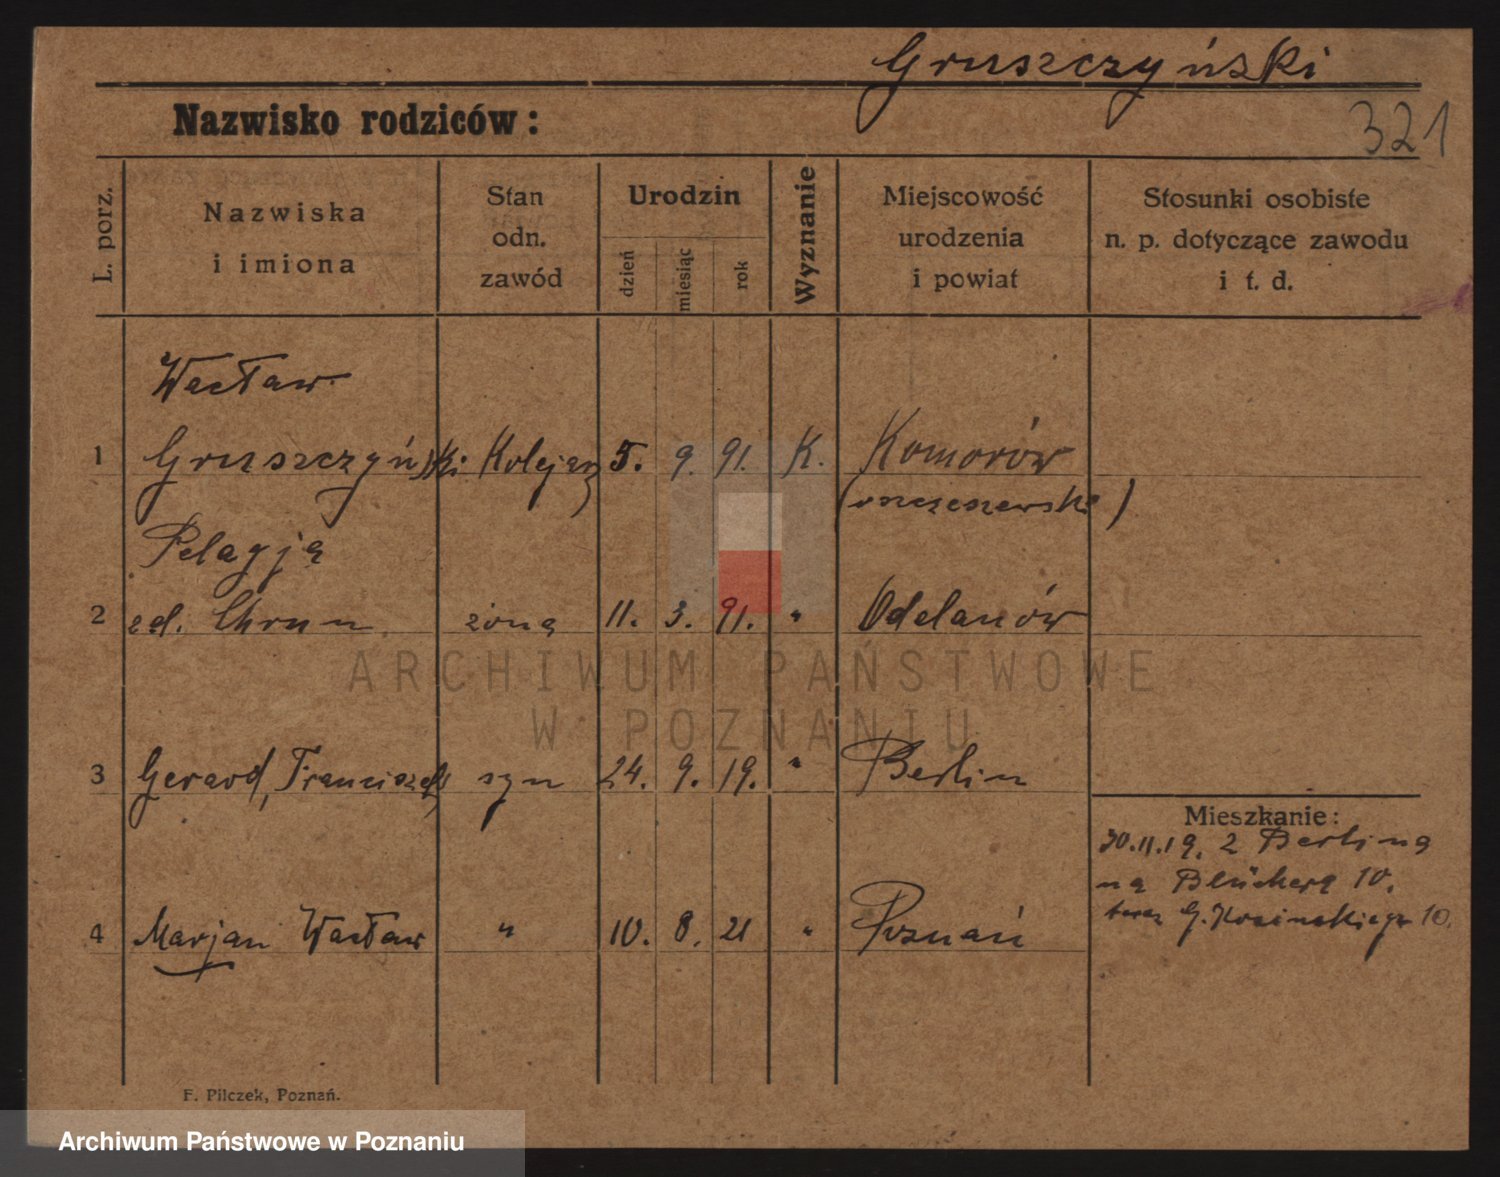 Gruszczyński
Nazwisko rodziców:
321
L. porz.
Nazwiska
i imiona
Stan
odn.
zawód
Urodzin
dzień
miesiąc
rok
Wyznanie
Miejscowość
urodzenia
i powiat
Stosunki osobiste
n. p. dotyczące zawodu
i t. d.
Wacław
1 Gruszczyński Kolejarz 5. 9. 91. K. Komorów
Pelagja
2 Chrun żona 11. 3. 91. " Odolanów
3 Gerard, Franciszek syn 24. 9. 19. " Berlin
4 Marjan Wacław " 10. 8. 21 " Poznań
Mieszkanie:
30.11.19. z Berlina
na Blüchera 10.
teraz G. Kosińskiego 10.
F. Pilczek, Poznań.
ARCHIWUM PAŃSTWOWE
W POZNANIU
Archiwum Państwowe w Poznaniu